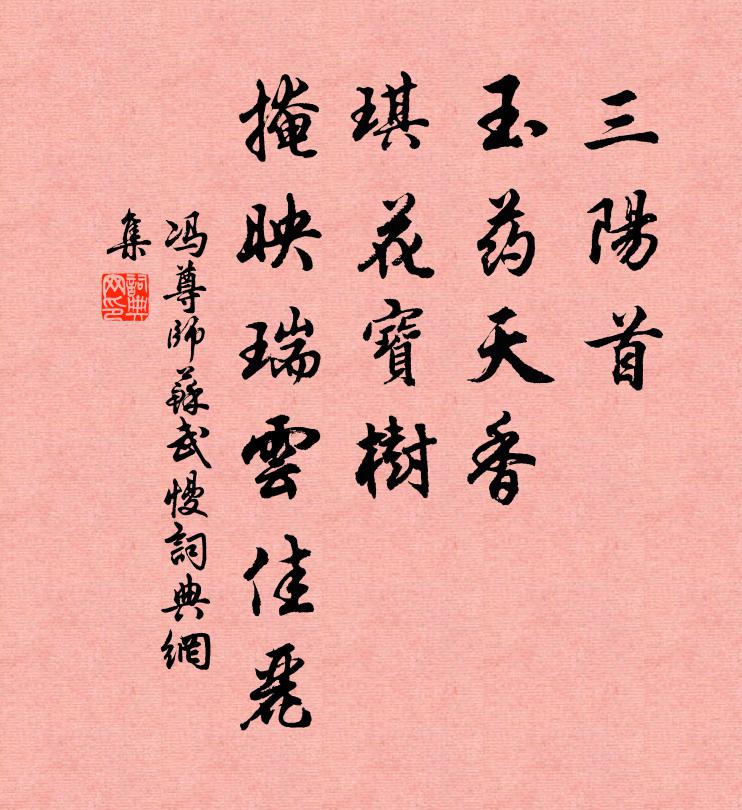 三陽首
玉药天香
琪花寶樹
掩映瑞雲佳麗
冯尊師蘇武慢詞典網
集
詞典
网印